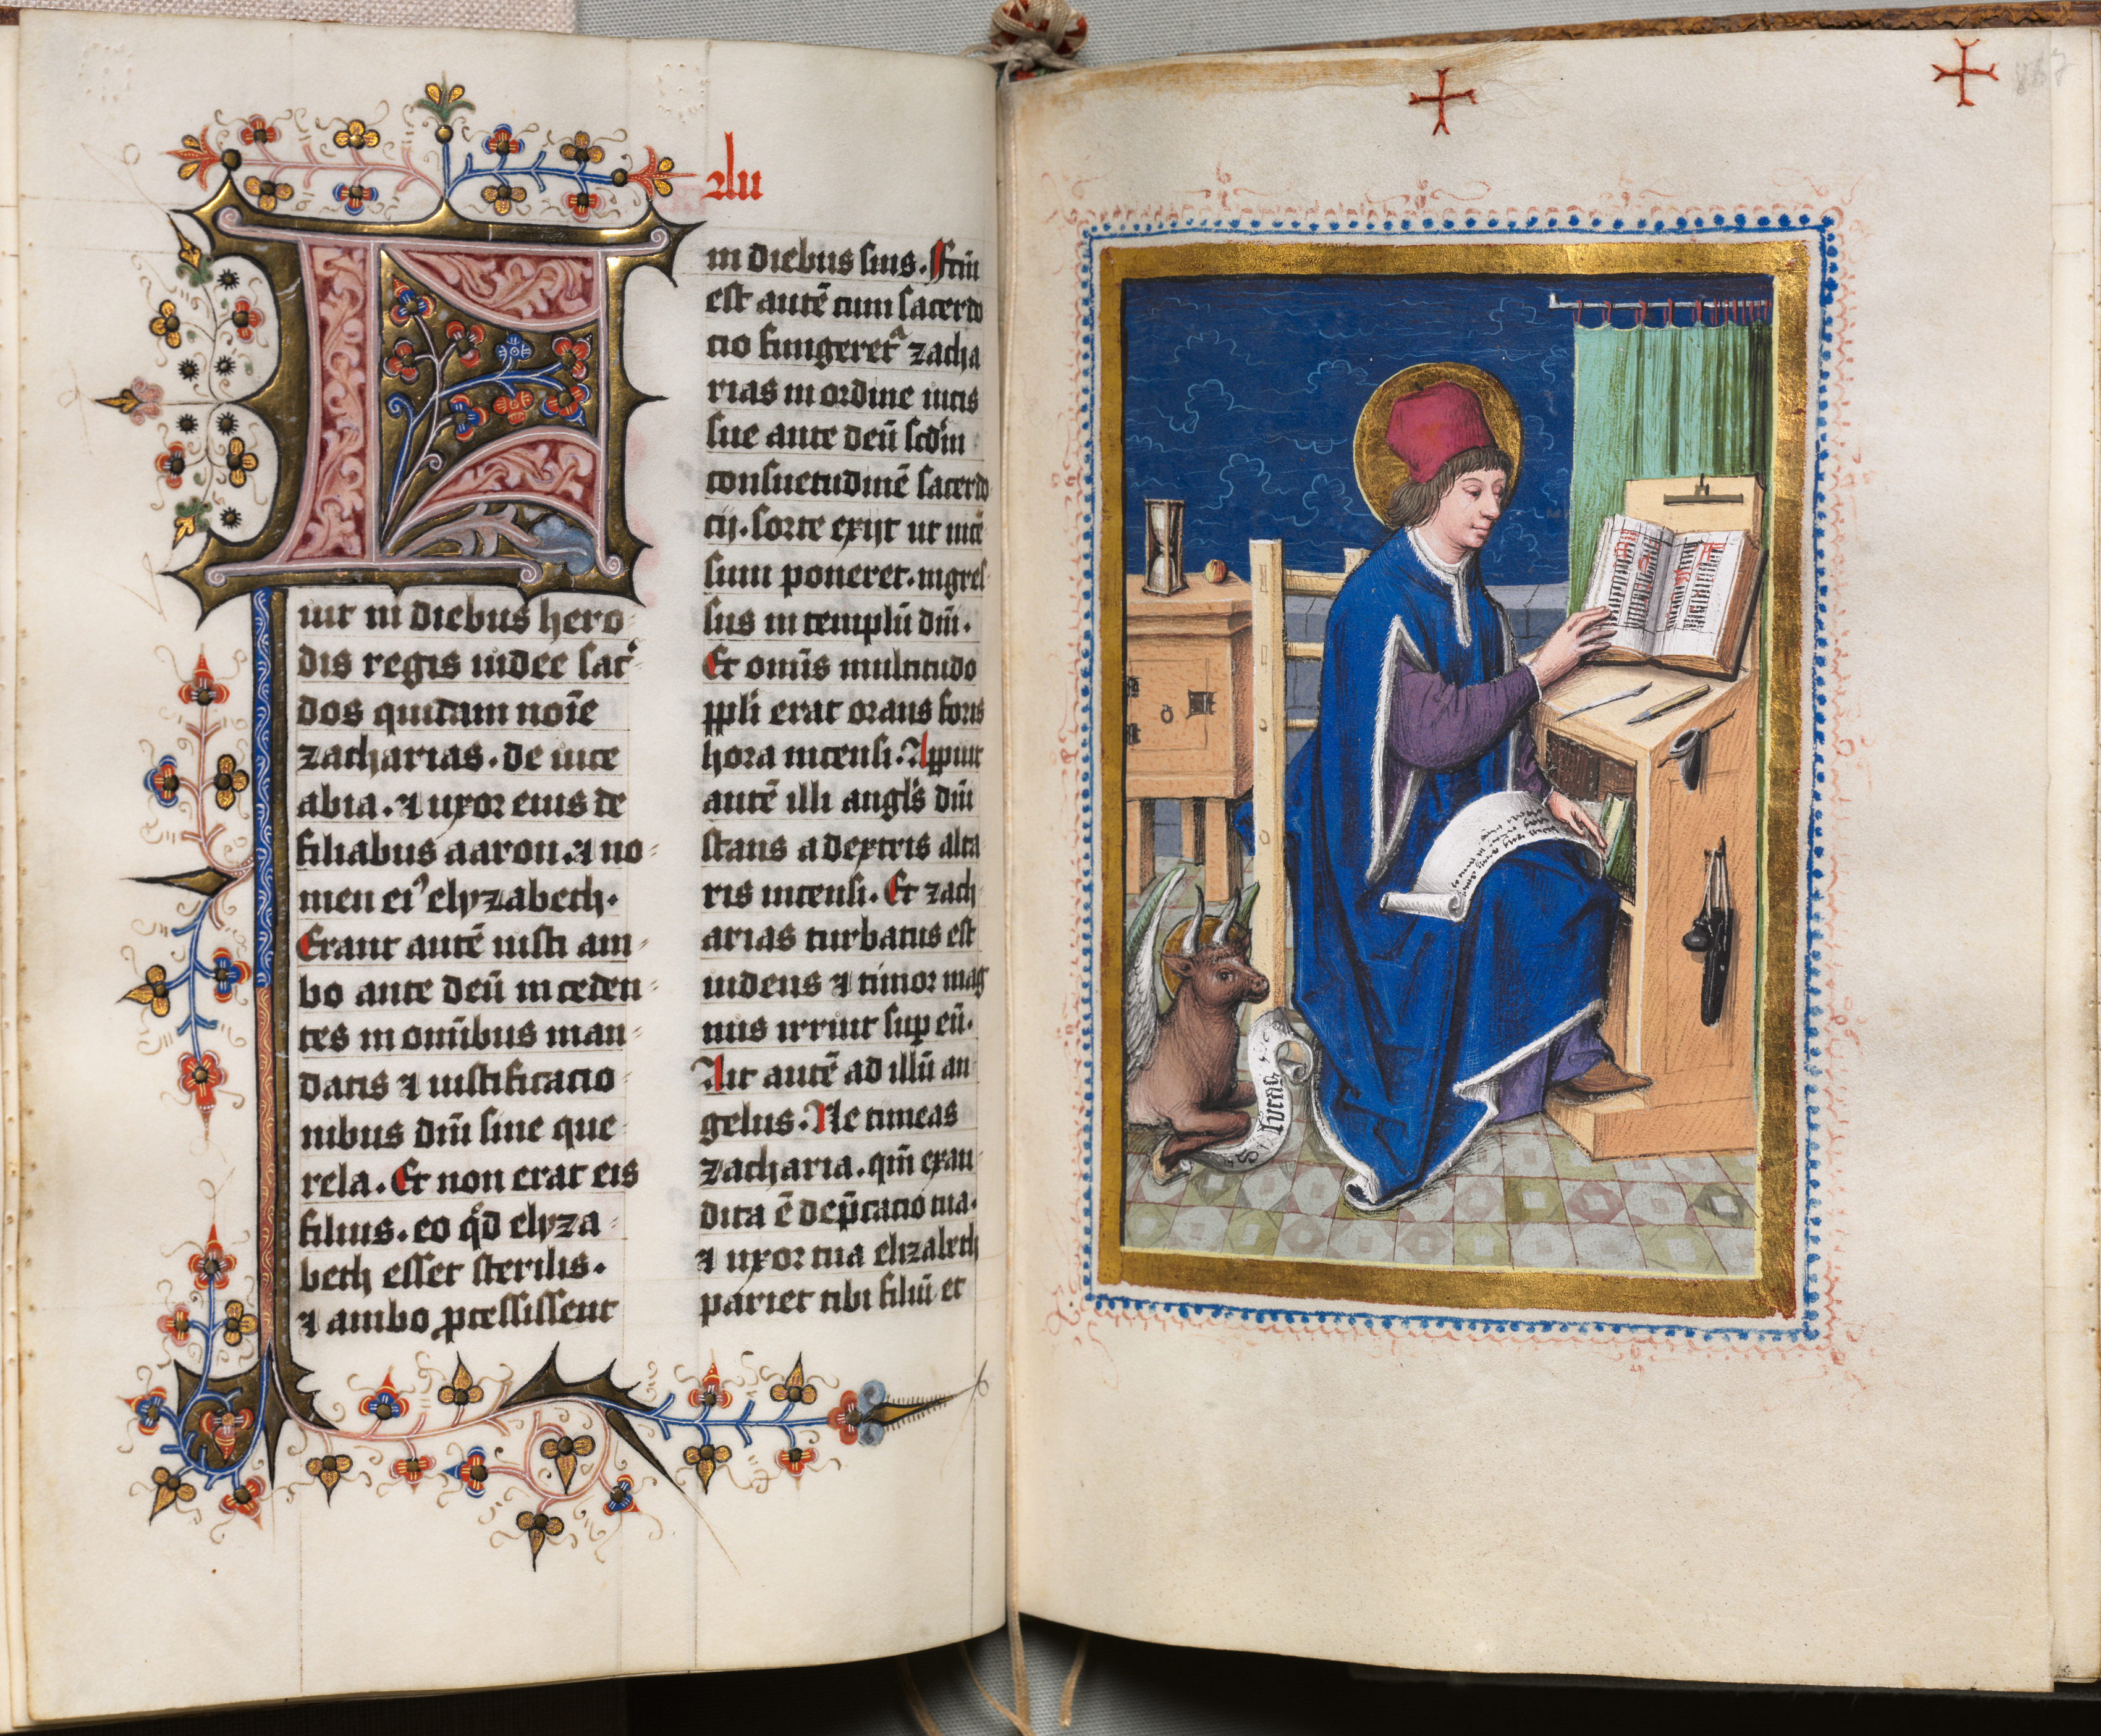 Lu
F
uit in diebus hero
dis regis iudee sac̄
dos quidam noīe
zacharias. de uice
abia. ⁊ uxor eius de
filiabus aaron. ⁊ no
men ei⁹ elyzabeth.
Erant autē iusti am
bo ante deū inceden
tes in omībus man
datis ⁊ iustificatio
nibus dn̄i sine que
rela. Et non erat eis
filius. eo qd̄ elyza
beth esset sterilis.
⁊ ambo ꝓcessissent
in diebus suis. Fctū
est autē cum sacerdo
cio fungeretᷓ zacha
rias in ordine uicis
sue ante deū scd̄m
consuetudinē sacerdo
cij. sorte exijt ut incē
sum poneret. ingres
sus in templū dn̄i.
Et omīs multitudo
ppl̄i erat orans foris
hora incensi. Appuit
autē illi angl̄s dn̄i
stans a dextris alta
ris incensi. Et zach
arias turbatus est
uidens ⁊ timor mag
nus irruit suꝑ eū.
Ait autē ad illū an
gelus. Ne timeas
zacharia. qm̄ exau
dita ē dep̄catio tua.
⁊ uxor tua elizabeth
pariet tibi filiū et
S lucas